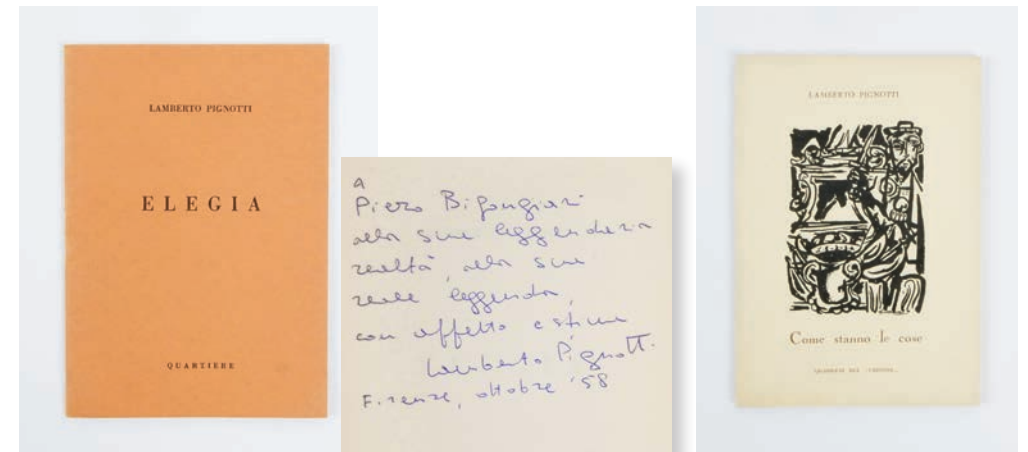 LAMBERTO PIGNOTTI
ELEGIA
QUARTIERE
A
Piero Bigongiari
alla sua leggendaria
realtà, alla sua
reale leggenda,
con affetto e stima
Lamberto Pignotti
Firenze, ottobre '58
LAMBERTO PIGNOTTI
Come stanno le cose
QUADERNI DEL